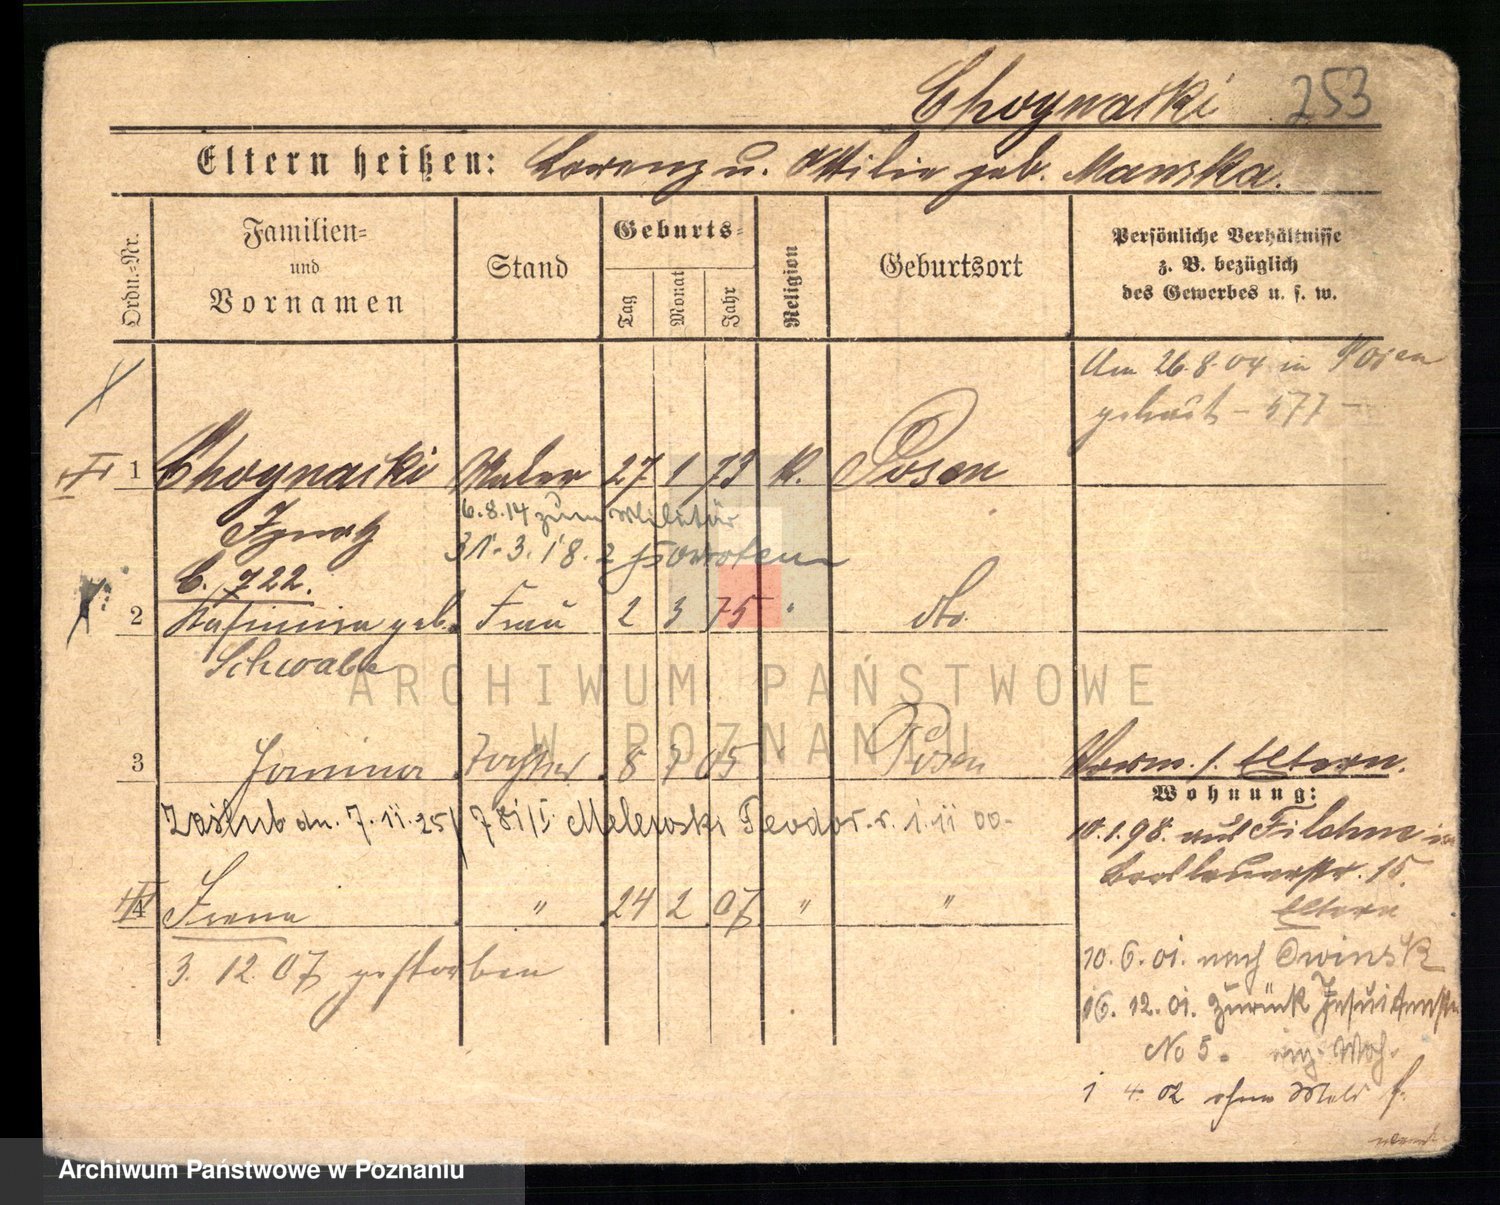 Choynacki 253
Eltern heißen: Lorenz u. Ottilie geb. Manska.
Ordn.-Nr.
Familien-
und
Vornamen
Stand
Geburts-
Tag
Monat
Jahr
Religion
Geburtsort
Persönliche Verhältnisse
z. B. bezüglich
des Gewerbes u. s. w.
Am 26.8.04 in Posen
getraut - 577 -
1 Choynacki Maler 27 1 73 K. Posen
Ignatz
6.8.14 zum Militär
31.3.18.
C. 722.
2 Kasimira geb. Frau 2 3 75 " do.
Schwabe
3 Janina Tochter 8 7 05 " Posen
Zaślub dn. 7.11.25 781/I Melewski Teodor. r. 1.11 00-
4 Irena " 24 2 07 " "
3. 12. 07 gestorben
Verm. s. Eltern.
Wohnung:
10.1.98. aus Filehne in
15.
Eltern
10.6.01. nach Owinsk
16.12.01. zurück Jesuitenstr.
No 5. Woh.
1 4. 02 ohne Meld
ARCHIWUM PAŃSTWOWE
W POZNANIU
Archiwum Państwowe w Poznaniu